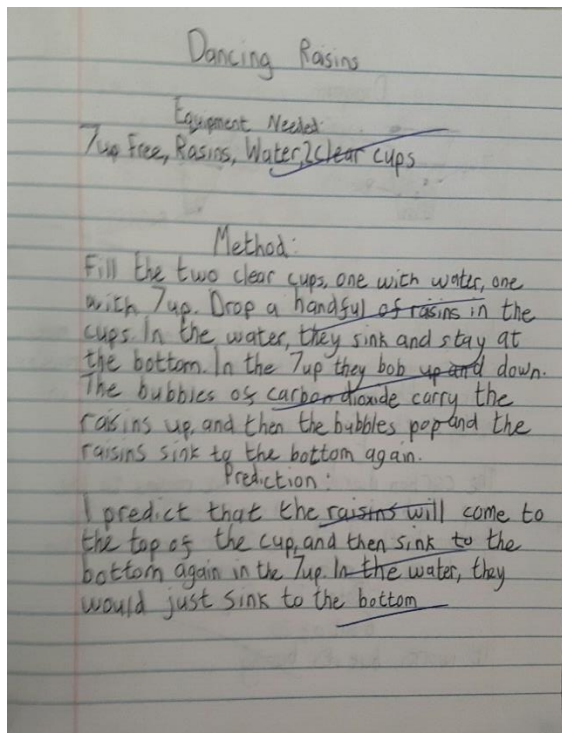 Dancing Raisins
Equipment Needed:
7up Free, Rasins, Water, 2 clear cups
Method:
Fill the two clear cups, one with water, one
with 7up. Drop a handful of rasins in the
cups. In the water, they sink and stay at
the bottom. In the 7up they bob up and down.
The bubbles of carbon dioxide carry the
raisins up, and then the bubbles pop and the
raisins sink to the bottom again.
Prediction:
I predict that the raisins will come to
the top of the cup, and then sink to the
bottom again in the 7up. In the water, they
would just sink to the bottom